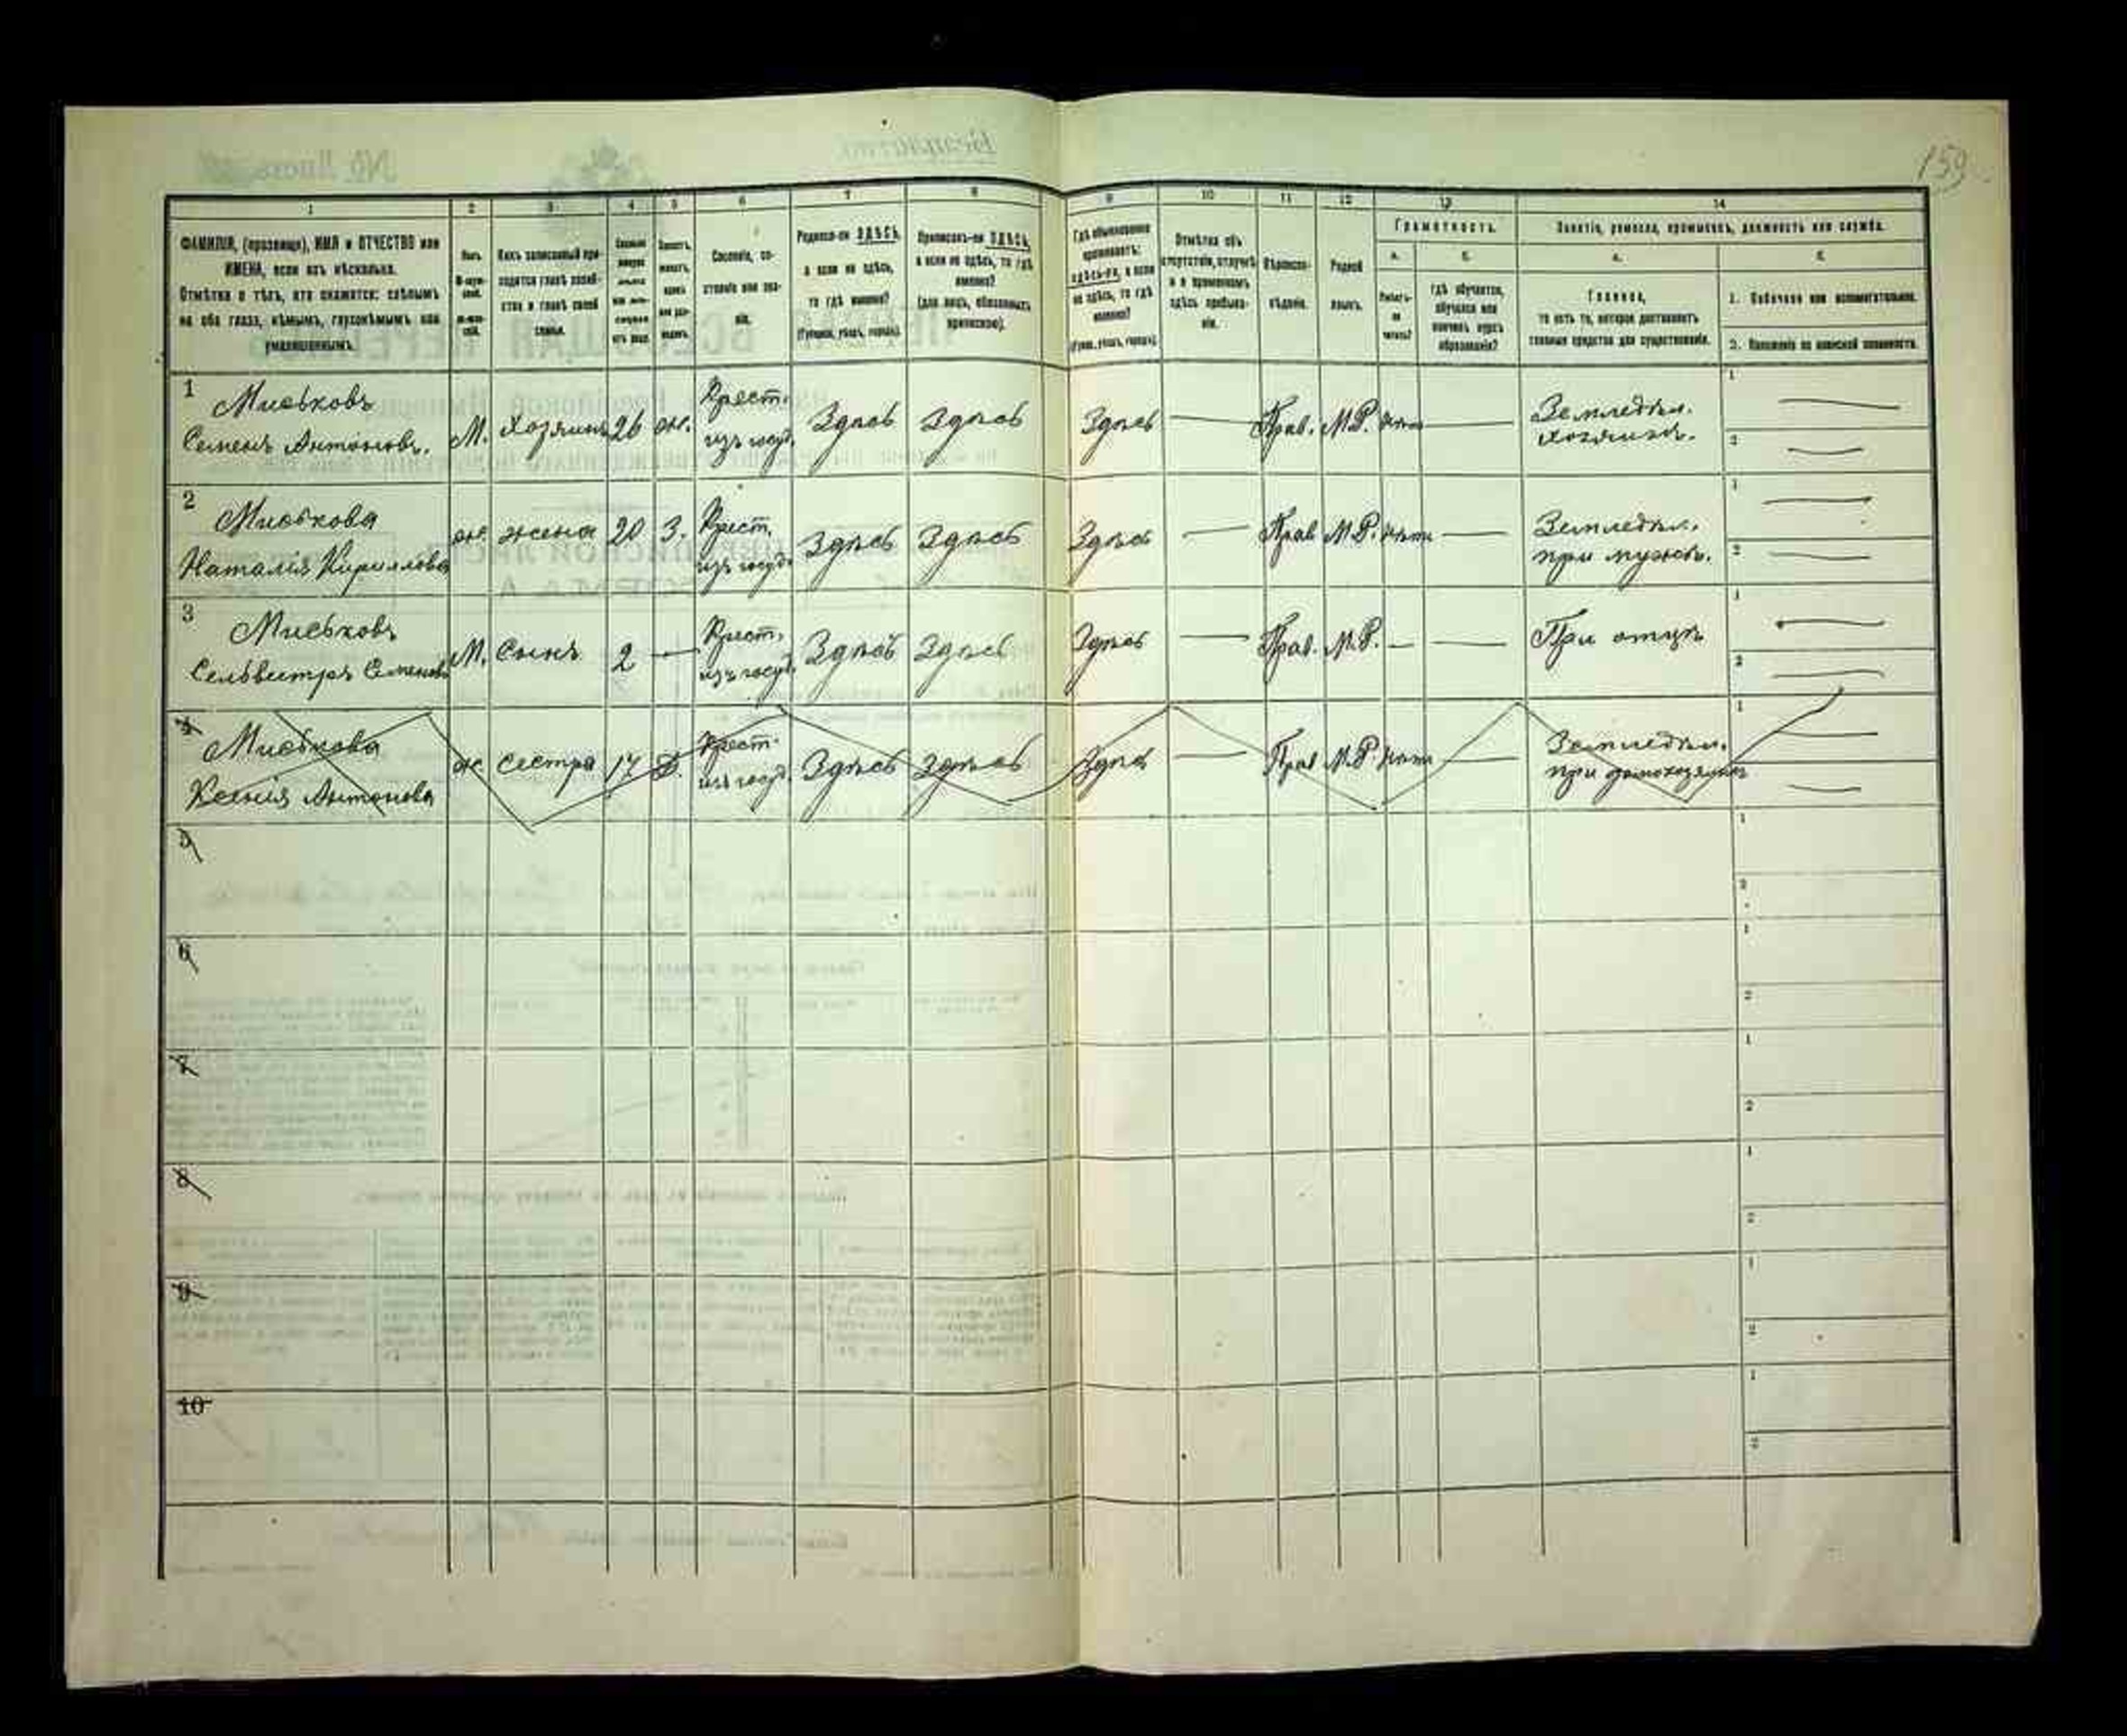 159
1
2
3
4
5
6
7
8
9
10
11
12
13
14
ФАМИЛІЯ, (прозвище), ИМЯ и ОТЧЕСТВО или
ИМЕНА, если ихъ нѣсколько.
Отмѣтка о тѣхъ, кто окажется: слѣпымъ
на оба глаза, нѣмымъ, глухонѣмымъ или
умалишеннымъ.
Какъ записанный при-
ходится главѣ хозяй-
ства и главѣ своей
семьи.
Сословіе, со-
стояніе или зва-
ніе.
Родился-ли ЗДѢСЬ,
а если не здѣсь,
то гдѣ именно?
(Губернія, уѣздъ, городъ).
Приписанъ-ли ЗДѢСЬ,
а если не здѣсь, то гдѣ
именно?
(для лицъ, обязанныхъ
припискою).
Гдѣ обыкновенно
проживаетъ:
здѣсь-ли, а если
не здѣсь, то гдѣ
именно?
(Губер., уѣздъ, городъ).
Отмѣтка объ
отсутствіи, отлучкѣ
и о временномъ
здѣсь пребыва-
ніи.
Вѣроиспо-
вѣданіе.
Родной
языкъ.
Грамотность.
а.
б.
Умѣетъ-
ли
читать?
гдѣ обучается,
обучался или
кончилъ курсъ
образованія?
Занятіе, ремесло, промыселъ, должность или служба.
а.
б.
Главное,
то есть то, которое доставляетъ
главныя средства для существованія.
1. Побочное или вспомогательное.
2. Положеніе по воинской повинности.
1
Семенъ Антоновъ.
М.
Хозяинъ
26
ж.
Крест.
изъ госуд.
Здѣсь
Здѣсь
Здѣсь
—
Прав.
М.Р.
нѣтъ
—
Земледѣл.
хозяинъ.
1 —
2 —
2
Наталія Кириллова
ж.
жена
20
З.
Крест.
изъ госуд.
Здѣсь
Здѣсь
Здѣсь
—
Прав
М.Р.
нѣтъ
—
Земледѣл.
при мужѣ.
1 —
2 —
3
Сельвестръ Семеновъ
М.
Сынъ
2
—
Крест.
изъ госуд.
Здѣсь
Здѣсь
Здѣсь
—
Прав.
М.Р.
—
—
При отцѣ
1 —
2 —
4
Ксенія Антонова
ж
Сестра
17
Д.
Крест.
изъ госуд.
Здѣсь
Здѣсь
Здѣсь
—
Прав
М.Р.
нѣтъ
—
Земледѣл.
при домохозяинѣ
1 —
—
5
1
2
6
1
2
7
1
2
8
1
2
9
1
2
10
1
2